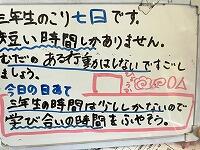 三年生のこり七日です。
短い時間しかありません。
むだのある行動はしないですごし
ましょう。
今日の目あて
三年生の時間は少ししかないので
学び合いの時間をふやそう。